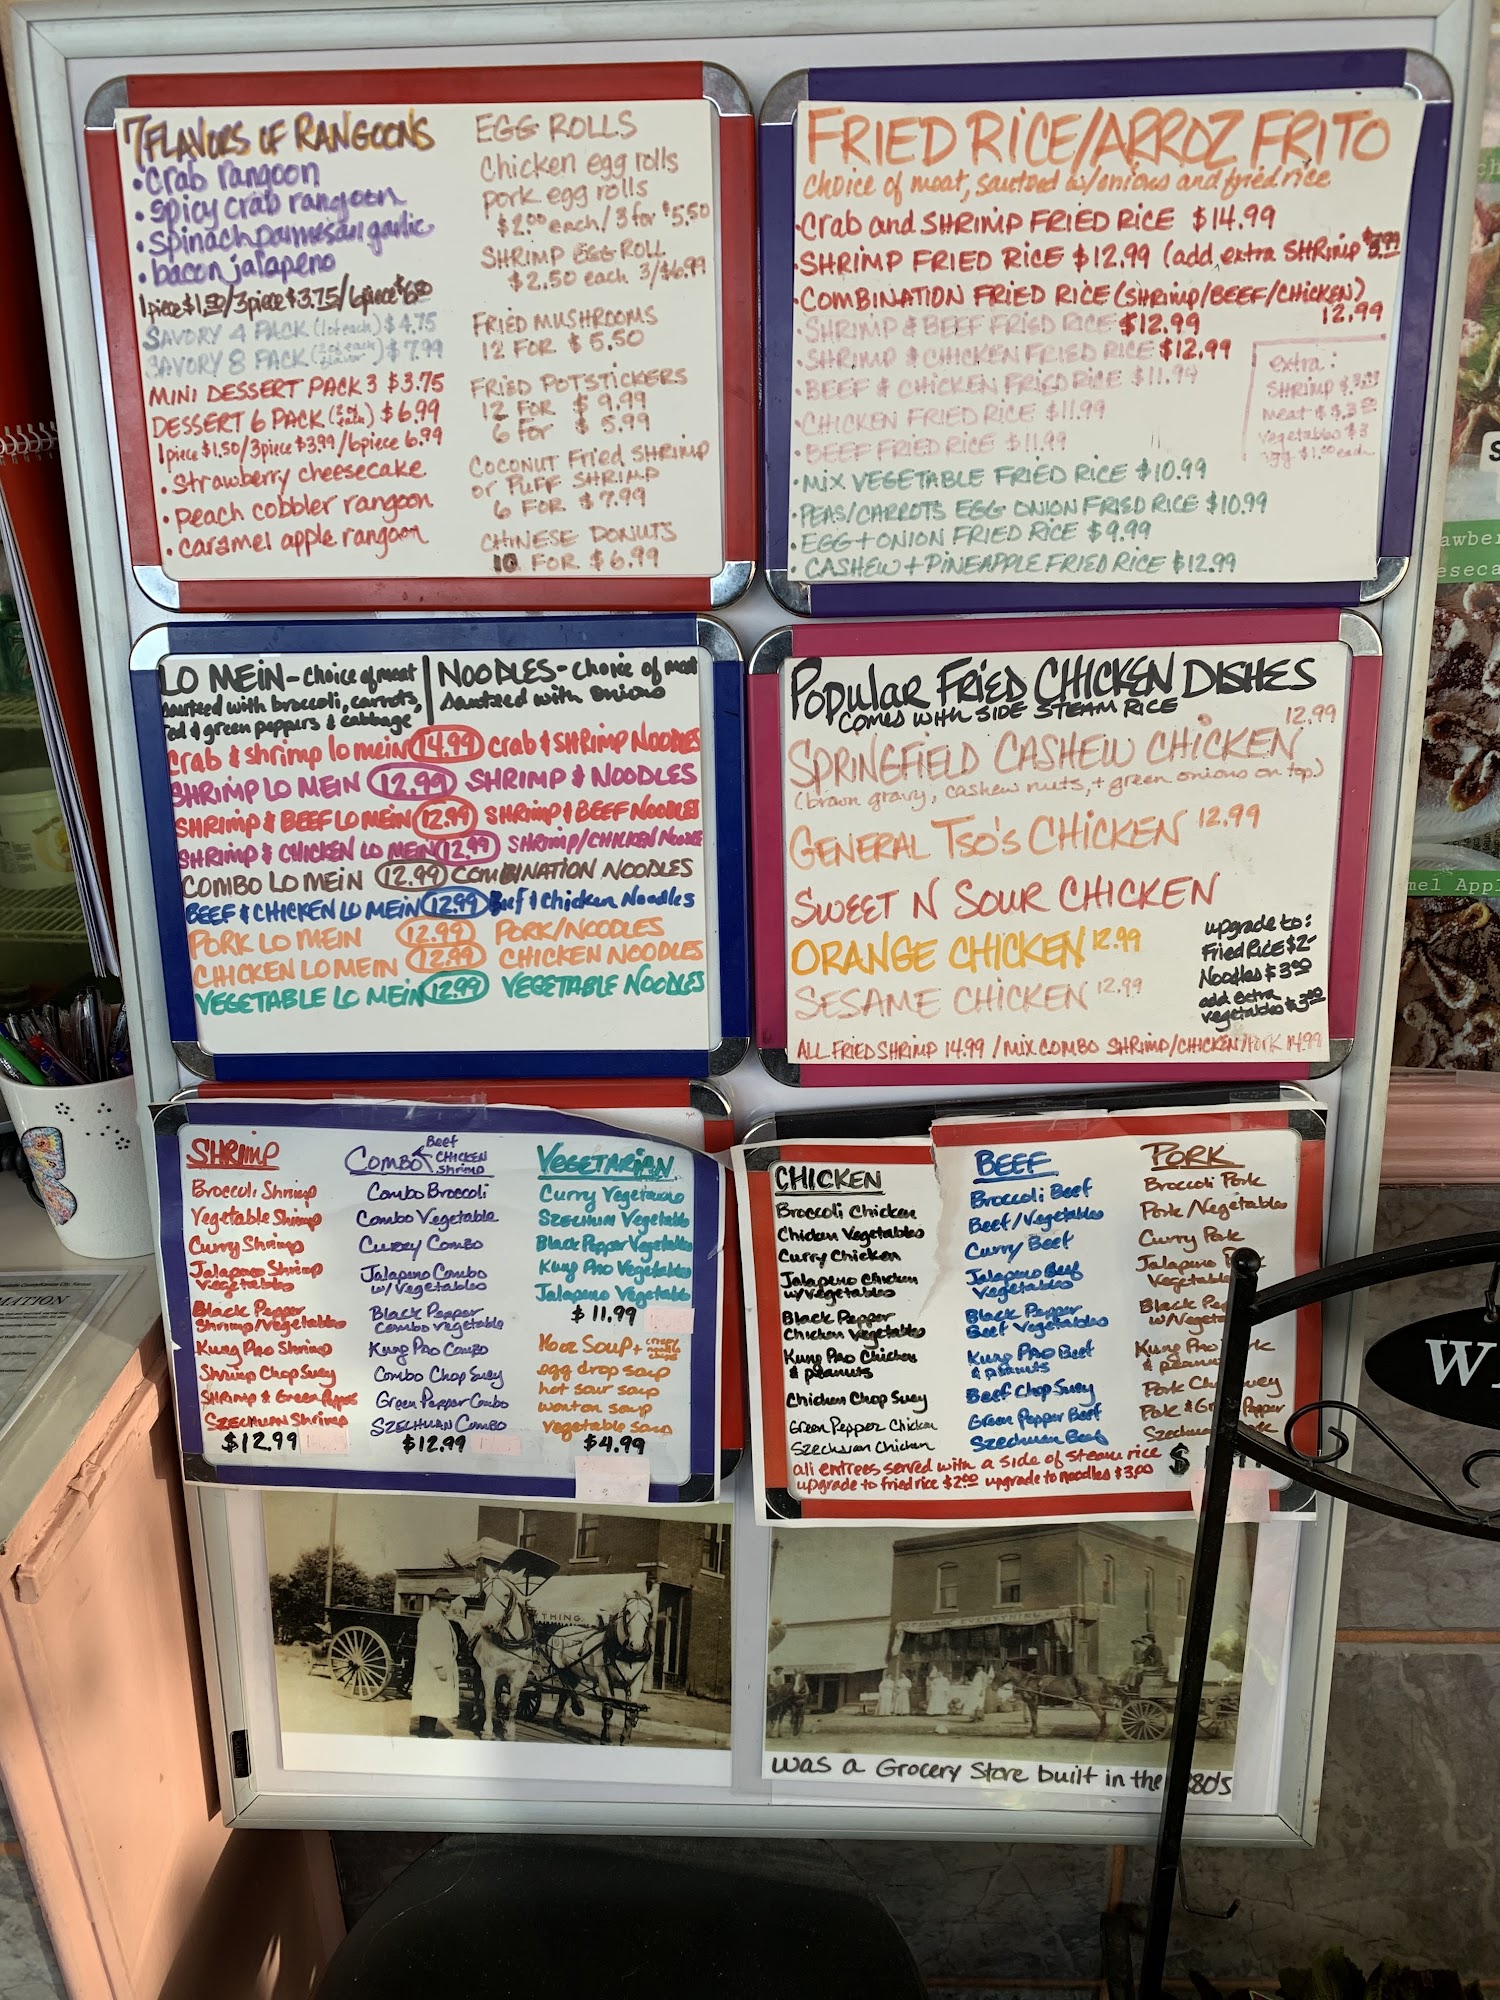 7 FLAVORS OF RANGOONS
• crab rangoon
• spicy crab rangoon
• spinach parmesan garlic
• bacon jalapeno
1 piece $1.50/3piece $3.75/6piece $6.50
SAVORY 4 PACK (1 of each) $4.75
SAVORY 8 PACK $7.99
MINI DESSERT PACK 3 $3.75
DESSERT 6 PACK $6.99
1 piece $1.50/3piece $3.99/6piece 6.99
• Strawberry cheesecake
• peach cobbler rangoon
• caramel apple rangoon
EGG ROLLS
Chicken egg rolls
pork egg rolls
$2.00 each/3 for $5.50
SHRIMP EGG ROLL
$2.50 each 3/$6.99
FRIED MUSHROOMS
12 FOR $5.50
FRIED POTSTICKERS
12 FOR $9.99
6 FOR $5.99
COCONUT Fried SHRIMP
or PUFF SHRIMP
6 FOR $7.99
CHINESE DONUTS
10 FOR $6.99
FRIED RICE/ARROZ FRITO
choice of meat, sauteed w/onions and fried rice
• Crab and SHRIMP FRIED RICE $14.99
• SHRIMP FRIED RICE $12.99 (add extra SHRIMP
• COMBINATION FRIED RICE (SHRIMP/BEEF/CHICKEN)
12.99
• SHRIMP & BEEF FRIED RICE $12.99
• SHRIMP & CHICKEN FRIED RICE $12.99
• BEEF & CHICKEN FRIED RICE $11.99
• CHICKEN FRIED RICE $11.99
• BEEF FRIED RICE $11.99
• MIX VEGETABLE FRIED RICE $10.99
• PEAS/CARROTS EGG ONION FRIED RICE $10.99
• EGG + ONION FRIED RICE $9.99
• CASHEW + PINEAPPLE FRIED RICE $12.99
extra:
Shrimp
meat
vegetables $3
egg $1.00 each
LO MEIN - choice of meat
sauteed with broccoli, carrots,
red & green peppers & cabbage
NOODLES - choice of meat
sauteed with onions
crab & shrimp lo mein 14.99 crab & SHRIMP NOODLES
SHRIMP LO MEIN 12.99 SHRIMP & NOODLES
SHRIMP & BEEF LO MEIN 12.99 SHRIMP & BEEF NOODLES
SHRIMP & CHICKEN LO MEIN 12.99 SHRIMP/CHICKEN NOODLE
COMBO LO MEIN 12.99 COMBINATION NOODLES
BEEF & CHICKEN LO MEIN 12.99 Beef & Chicken Noodles
PORK LO MEIN 12.99 PORK/NOODLES
CHICKEN LO MEIN 12.99 CHICKEN NOODLES
VEGETABLE LO MEIN 12.99 VEGETABLE NOODLES
Popular Fried CHICKEN DISHES
COMES WITH SIDE STEAM RICE
12.99
SPRINGFIELD CASHEW CHICKEN
(brown gravy, cashew nuts, + green onions on top)
GENERAL TSO'S CHICKEN 12.99
SWEET N SOUR CHICKEN
ORANGE CHICKEN 12.99
SESAME CHICKEN 12.99
upgrade to:
Fried Rice $2-
Noodles $3.00
add extra
vegetables $3.00
ALL FRIED SHRIMP 14.99 / MIX COMBO SHRIMP/CHICKEN/PORK 14.99
SHRIMP
Broccoli Shrimp
Vegetable Shrimp
Curry Shrimp
Jalapeno Shrimp
Vegetables
Black Pepper
Shrimp/Vegetables
Kung Pao Shrimp
Shrimp Chop Suey
SHRIMP & Green Peppers
SZECHUAN Shrimp
$12.99
COMBO
Beef
CHICKEN
Shrimp
Combo Broccoli
Combo Vegetable
Curry Combo
Jalapeno Combo
w/Vegetables
Black Pepper
Combo vegetable
Kung Pao Combo
Combo Chop Suey
Green Pepper Combo
SZECHUAN COMBO
$12.99
VEGETARIAN
Curry Vegetables
SZECHUAN Vegetables
Black Pepper Vegetable
Kung Pao Vegetable
Jalapeno Vegetable
$11.99
egg drop soup
hot sour soup
wonton soup
vegetable soup
$4.99
CHICKEN
Broccoli Chicken
Chicken Vegetables
Curry Chicken
Jalapeno Chicken
w/vegetables
Black Pepper
Chicken Vegetables
Kung Pao Chicken
& peanuts
Chicken Chop Suey
Green Pepper Chicken
Szechuan Chicken
BEEF
Broccoli Beef
Beef/Vegetables
Curry Beef
Jalapeno Beef
Vegetables
Black Pepper
Beef Vegetables
Kung Pao Beef
& peanuts
Beef Chop Suey
Green Pepper Beef
Szechuan Beef
PORK
Broccoli Pork
Pork/Vegetables
Curry Pork
Jalapeno
Vegetable
Black
w/Vegeta
Kung Pao
& peanu
Pork Ch uey
Pork & Gr Pepper
Szechua
all entrees served with a side of steam rice
upgrade to fried rice $2.00 upgrade to noodles $3.00
$
YTHING.
EVERYTHING
was a Grocery Store built in the 80's
MATION
W
mel Appl